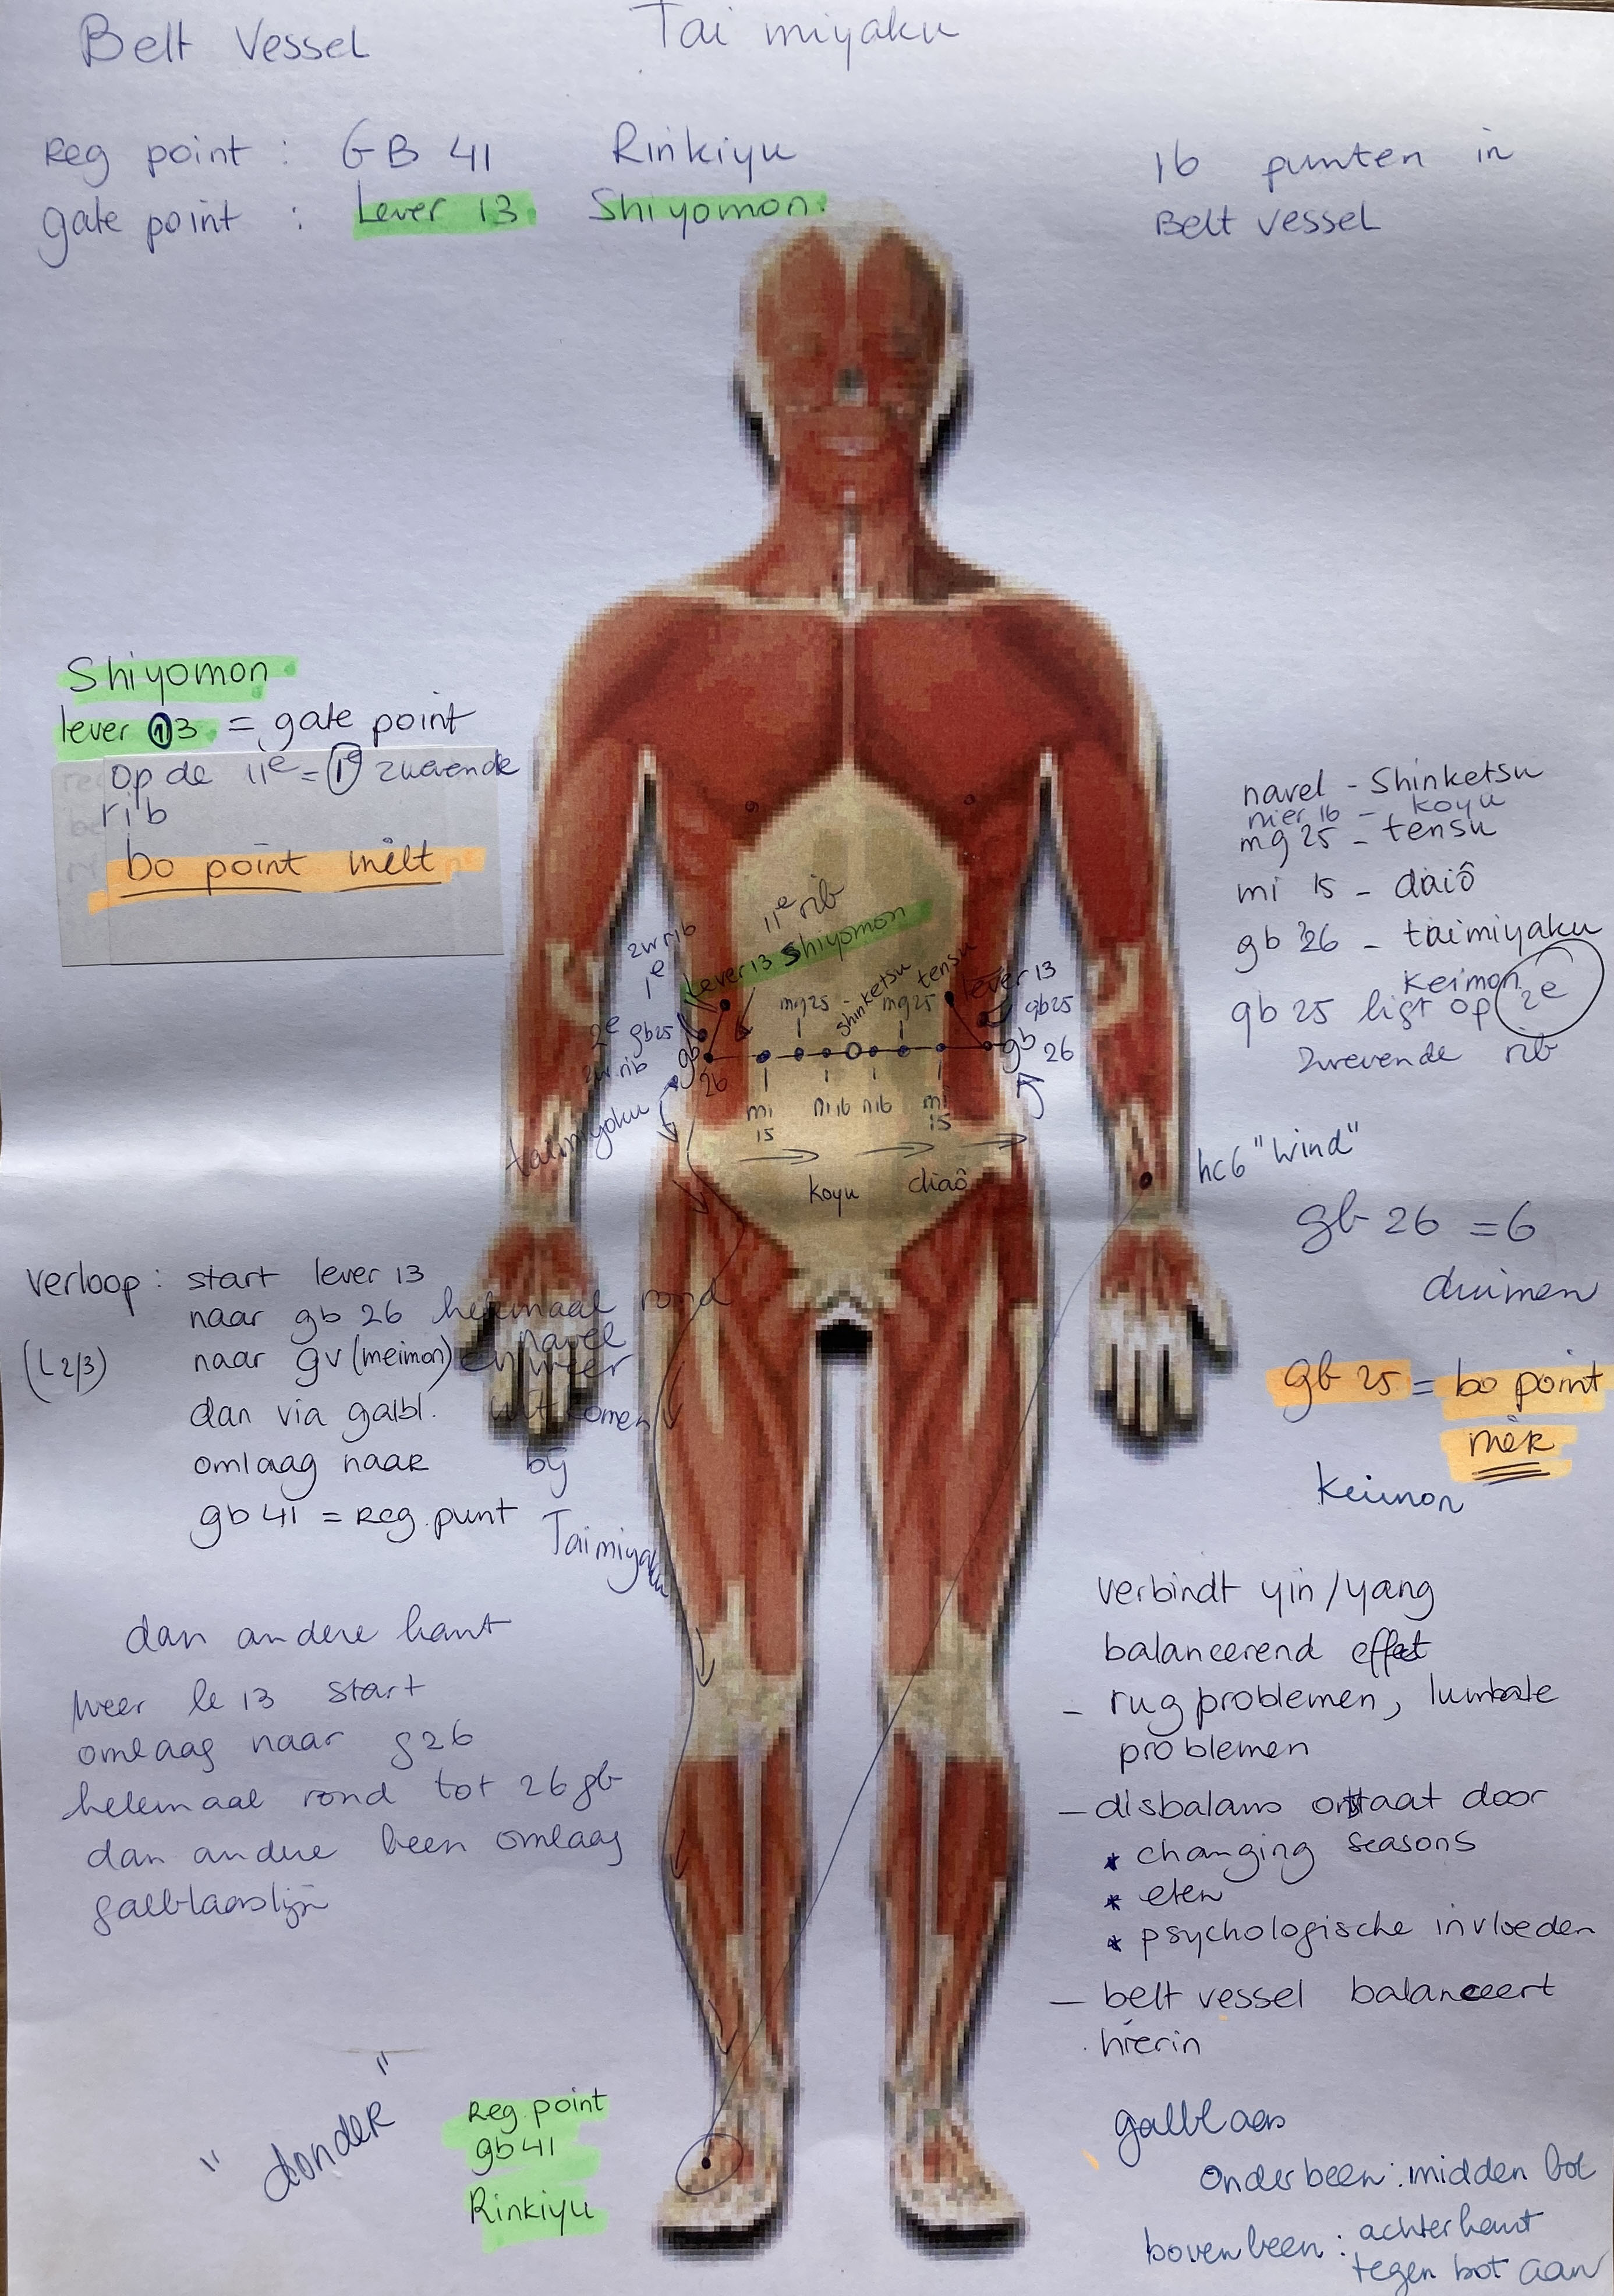 Belt Vessel
Tai miyaku
Reg point : GB 41 Rinkiyu
gate point : Lever 13 Shiyomon
16 punten in
Belt vessel
Shiyomon
lever 13 = gate point
op de 11e = 1e zwevende
rib
bo point milt
navel - Shinketsu
nier 16 - koyu
mg 25 - tensu
mi 15 - daiô
gb 26 - taimiyaku
keimon
gb 25 ligt op 2e
zwevende rib
11e rib
zw rib
1e
Lever 13 Shiyomon
2e gb25
zw. rib
gb
26
taimiyaku
mg25 - shinketsu
mg25
tensu
Lever 13
gb25
gb 26
mi
15
ni16
ni6
mi
15
koyu
diaô
hc6 "wind"
gb 26 = 6
duimen
gb 25 = bo point
nier
keimon
verloop : start lever 13
naar gb 26 helemaal rond
navel
(L2/3) naar gv (meimon) en weer
dan via galbl. uitkomen
omlaag naar bij
gb 41 = Reg. punt Taimiyaku
dan andere kant
weer le 13 start
omlaag naar g26
helemaal rond tot 26 gb
dan andere been omlaag
galblaaslijn
verbindt yin / yang
balancerend effect
- rug problemen, lumbale
problemen
- disbalans ontstaat door
* changing seasons
* eten
* psychologische invloeden
- belt vessel balanceert
hierin
"donder"
Reg. point
gb 41
Rinkiyu
galblaas
onderbeen : midden bot
bovenbeen : achterkant
tegen bot aan